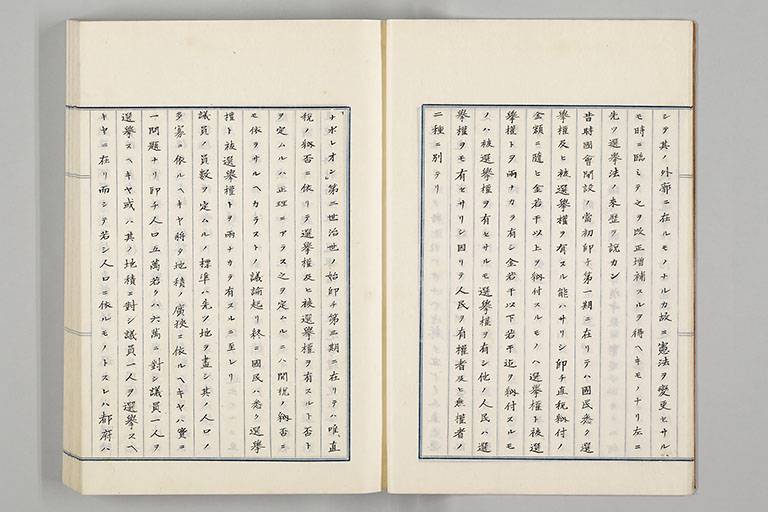 シテ其ノ外廓ニ在ルモノナルカ故ニ憲法ヲ變更セサルハ
モ時ニ臨ミテ之ヲ改正增補スルヲ得ヘキモノナリ左ニ
先ツ選擧法ノ來歷ヲ說カン
昔時國會開設ノ當初卽チ第一期ニ在リテハ國民悉ク選
擧權及ヒ被選擧權ヲ有スル能ハサリシ卽チ直稅納付ノ
金額ニ隨ヒ金若干以上ヲ納付スルモノハ選擧權ト被選
擧權トヲ兩ナカラ有シ金若干以下若干迄ヲ納付スルモ
ノハ被選擧權ヲ有セサルモ選擧權ヲ有シ他ノ人民ハ選
擧權ヲモ有セサリシ因リテ人民ヲ有權者及ヒ無權者ノ
二種ニ別テリ
ナポレオン第三世治世ノ始卽チ第二期ニ在リテハ唯直
稅ノ納否ニ依リテ選擧權及ヒ被選擧權ヲ有スルト否ト
ヲ定ムルハ正理ニアラス之ヲ定ムルニハ間稅ノ納否ニ
モ依ラサルヘカラストノ議論起リ終ニ國民ハ悉ク選擧
權ト被選擧權トヲ兩ナカラ有スルニ至レリ
議員ノ員數ヲ定ムルノ標準ハ先ツ地ヲ畫シ其ノ人口ノ
多寡ニ依ルヘキヤ將タ地積ノ廣狹ニ依ルヘキヤハ實ニ
一問題ナリ卽チ人口五萬若クハ六萬ニ對シ議員一人ヲ
選擧スヘキヤ或ハ其ノ地積ニ對シ議員一人ヲ選擧スヘ
キヤニ在リ而シテ若シ人口ニ依ルモノトスレハ都府ハ